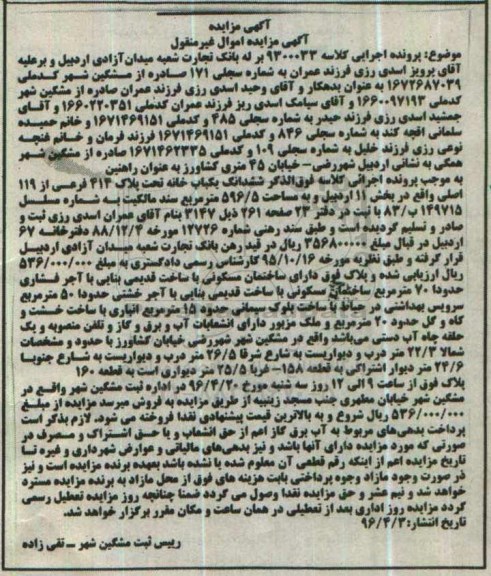 آگهی مزایده
آگهی مزایده اموال غیرمنقول
موضوع: پرونده اجرایی کلاسه ۹۳۰۰۰۳۳ بر له بانک تجارت شعبه میدان آزادی اردبیل و برعلیه
آقای پرویز اسدی رزی فرزند عمران به شماره سجلی ۱۷۱ صادره از مشگین شهر کدملی
۱۶۷۲۶۸۷۰۳۹ به عنوان بدهکار و آقای وحید اسدی رزی فرزند عمران صادره از مشگین شهر
کدملی ۱۶۶۰۰۹۷۱۹۳ و آقای سیامک اسدی ریز فرزند عمران کدملی ۱۶۶۰۲۲۰۳۵۱ و آقای
جمشید اسدی رزی فرزند حیدر به شماره سجلی ۴۸۵ و کدملی ۱۶۷۱۴۶۹۱۵۱ و خانم حمیده
سلمانی اقچه کند به شماره سجلی ۸۴۶ و کدملی ۱۶۷۱۴۶۹۱۵۱ فرزند فرمان و خانم غنچه
نوعی رزی فرزند خلیل به شماره سجلی ۱۰۹ و کدملی ۱۶۷۱۴۶۲۳۳۵ صادره از مشگین شهر
همگی به نشانی اردبیل شهررضی– خیابان ۴۵ متری کشاورز به عنوان راهنین
به موجب پرونده اجرائی کلاسه فوق‌الذکر ششدانگ یکباب خانه تحت پلاک ۴۱۴ فرعی از ۱۱۹
اصلی واقع در بخش ۱۱ اردبیل و به مساحت ۵۹۶/۵ مترمربع سند مالکیت به شماره مسلسل
۱۴۹۷۱۵ ب/۸۳ با ثبت در دفتر ۲۳ صفحه ۲۶۱ ذیل ۳۱۴۷ بنام آقای عمران اسدی رزی ثبت و
صادر و تسلیم گردیده است و طبق سند رهنی شماره ۱۲۷۲۶ مورخ ۸۸/۱۲/۴ دفترخانه ۶۷
اردبیل در قبال مبلغ ۳۵۶۸۰۰۰۰۰ ریال در قید رهن بانک تجارت شعبه میدان آزادی اردبیل
قرار گرفته و طبق نظریه مورخه ۹۵/۱۰/۱۶ کارشناس رسمی دادگستری به مبلغ ۵۳۶/۰۰۰/۰۰۰
ریال ارزیابی شده و پلاک فوق دارای ساختمان مسکونی با ساخت قدیمی بنایی با آجر فشاری
حدودا ۷۰ مترمربع ساختمان مسکونی با ساخت قدیمی بنایی با آجر خشتی حدودا ۵۰ مترمربع
سرویس بهداشتی در حیاط با ساخت بلوک سیمانی حدود ۱۵ مترمربع انباری با ساخت خشت و
گاه و گل حدود ۲۰ مترمربع و ملک مزبور دارای انشعابات آب و برق و گاز و تلفن منصوبه و یک
حلقه چاه آب دستی می‌باشد واقع در مشگین شهر شهررضی خیابان کشاورز با حدود و مشخصات
شمالا ۲۲/۳ متر درب و دیواریست به شارع شرقا ۲۶/۵ متر درب و دیواریست به شارع جنوبا
۲۴/۶ متر دیوار اشتراکی به قطعه ۱۵۸– غربا ۲۵/۵ متر دیواری است به قطعه ۱۶۰
پلاک فوق از ساعت ۹ الی ۱۲ روز سه شنبه مورخ ۹۶/۴/۲۰ در اداره ثبت مشگین شهر واقع در
مشگین شهر خیابان مطهری جنب مسجد زینبیه از طریق مزایده به فروش میرسد مزایده از مبلغ
۵۳۶/۰۰۰/۰۰۰ ریال شروع و به بالاترین قیمت پیشنهادی نقدا فروخته می شود. لازم بذکر است
پرداخت بدهی‌های مربوط به آب برق گاز اعم از حق انشعاب و یا حق اشتراک و مصرف در
صورتی که مورد مزایده دارای آنها باشد و نیز بدهی‌های مالیاتی و عوارض شهرداری و غیره تا
تاریخ مزایده اعم از اینکه رقم قطعی آن معلوم شده یا نشده باشد بعهده برنده مزایده است و نیز
در صورت وجود مازاد وجوه پرداختی بابت هزینه های فوق از محل مازاد به برنده مزایده مسترد
خواهد شد و نیم عشر و حق مزایده نقدا وصول می گردد ضمنا چنانچه روز مزایده تعطیل رسمی
گردد مزایده روز اداری بعد از تعطیلی در همان ساعت و مکان مقرر برگزار خواهد شد.
تاریخ انتشار: ۹۶/۴/۳
رییس ثبت مشگین شهر – تقی زاده